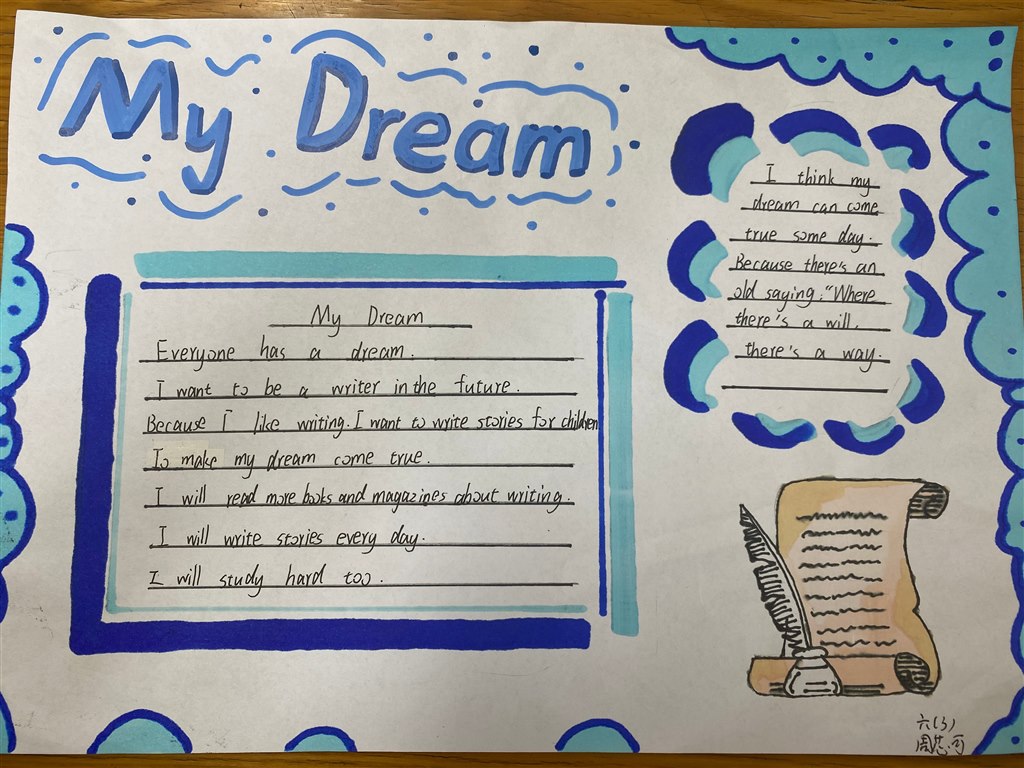 My Dream
My Dream
Everyone has a dream.
I want to be a writer in the future.
Because I like writing. I want to write stories for children
To make my dream come true.
I will read more books and magazines about writing.
I will write stories every day.
I will study hard too.
I think my
dream can come
true some day.
Because there's an
old saying: "Where
there's a will,
there's a way.
六(3)
周芯可